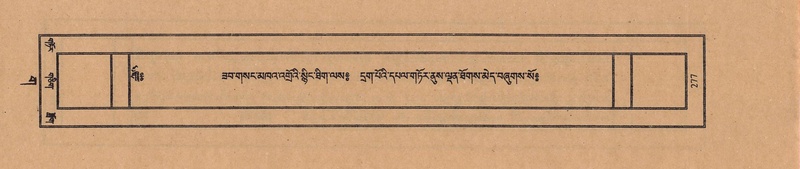 ༄༅༔ ཟབ་གསང་མཁའ་འགྲོའི་སྙིང་ཐིག་ལས༔ དྲག་པོའི་དཔལ་གཏོར་ནུས་ལྡན་ཐོགས་མེད་བཞུགས་སོ༔
277